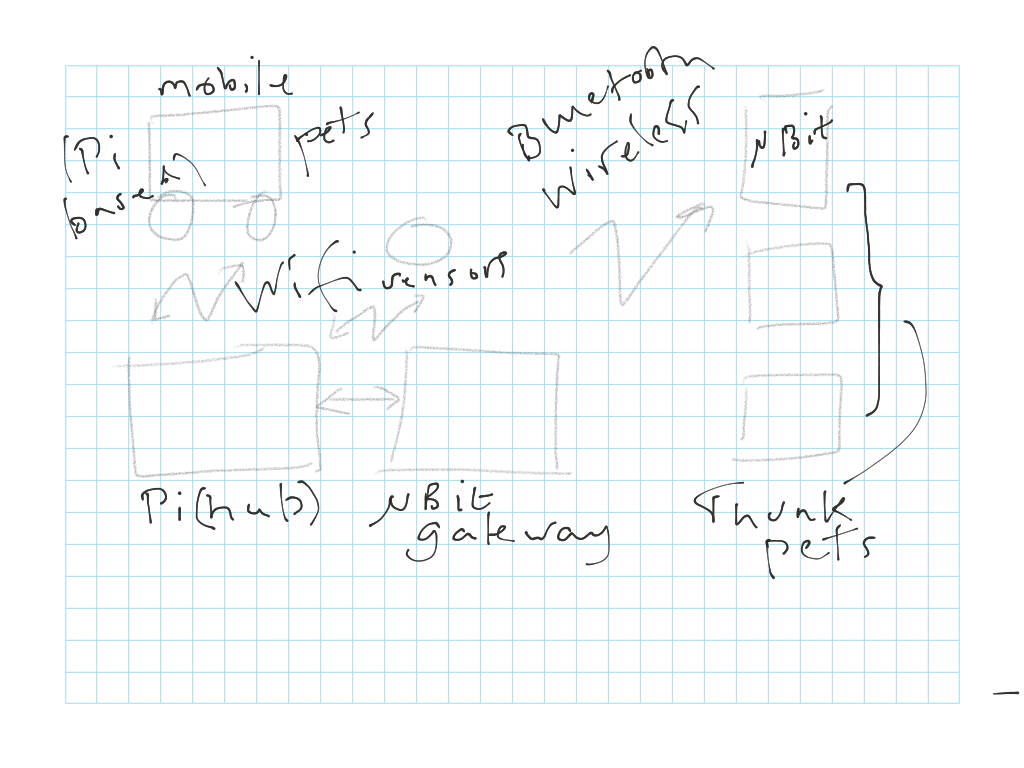 mobile
pets
(Pi
based)
Bluetooth
wireless
μBit
Wifi
sensors
Pi(hub)
μBit
gateway
Thunk
pets